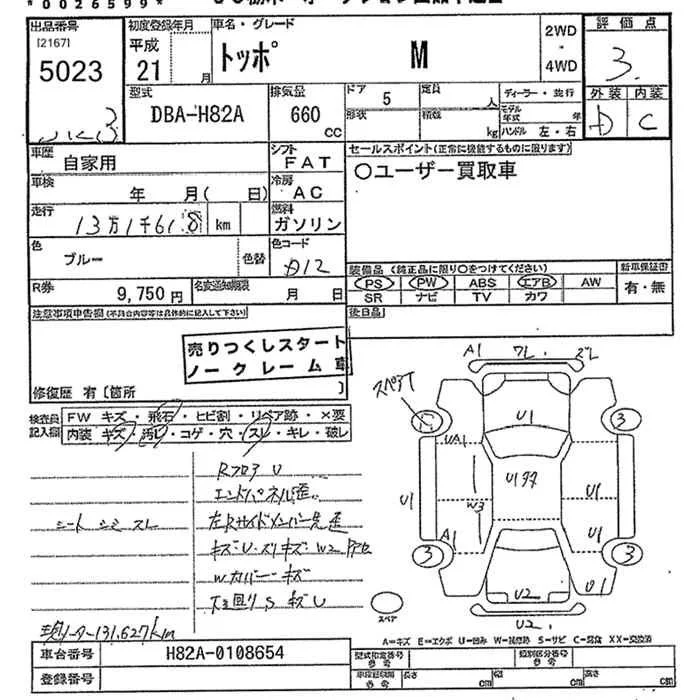 * 0026599 *
出品番号
[2167]
5023
初度登録年月
平成
21 月
車名・グレード
トッポ M
2WD
・
4WD
評価点
3.
外装 内装
D C
型式
DBA-H82A
排気量
660
CC
ドア 5
定員 人
形状
積載 kg
ディーラー・並行
モデル年式 年
ハンドル 左・右
車歴
自家用
シフト
FAT
セールスポイント(正常に機能するものに限ります)
○ユーザー買取車
車検
年 月( 日)
冷房
AC
走行
13万1千618 km
燃料
ガソリン
色
ブルー
色替
色コード
A12
R券
9,750円
名変通知期限
月 日
装備品 (純正品に限り○をつけてください)
PS PW ABS エアB カワ AW
SR ナビ TV
新車保証書
有・無
後日品
注意事項申告欄(不具合内容等は具体的に記入して下さい)
売りつくしスタート
ノークレーム車
修復歴 有〔箇所 〕
検査員記入欄
FW キズ・飛石・ヒビ割・リペア跡・×要
内装 キズ・汚レ・コゲ・穴・スレ・キレ・破レ
Rフロア U
エンドパネル歪
シート シミ スレ
左Rサイドメンバー先歪
キズ・U・スリキズ・W2
Wカバー キズ
下回り S キズ U
現メーター131,627km
スペアT
A1
U1
UA1
U1
W3
A1
U1
U1
U1
U2
U2
3
3
3
スペア
A=キズ E=エクボ U=凹み W=補修跡 S=サビ C=腐食 XX=交換済
車台番号
H82A-0108654
登録番号
型式指定番号
参考
類別区分番号
参考
長さ cm
幅 cm
高さ cm